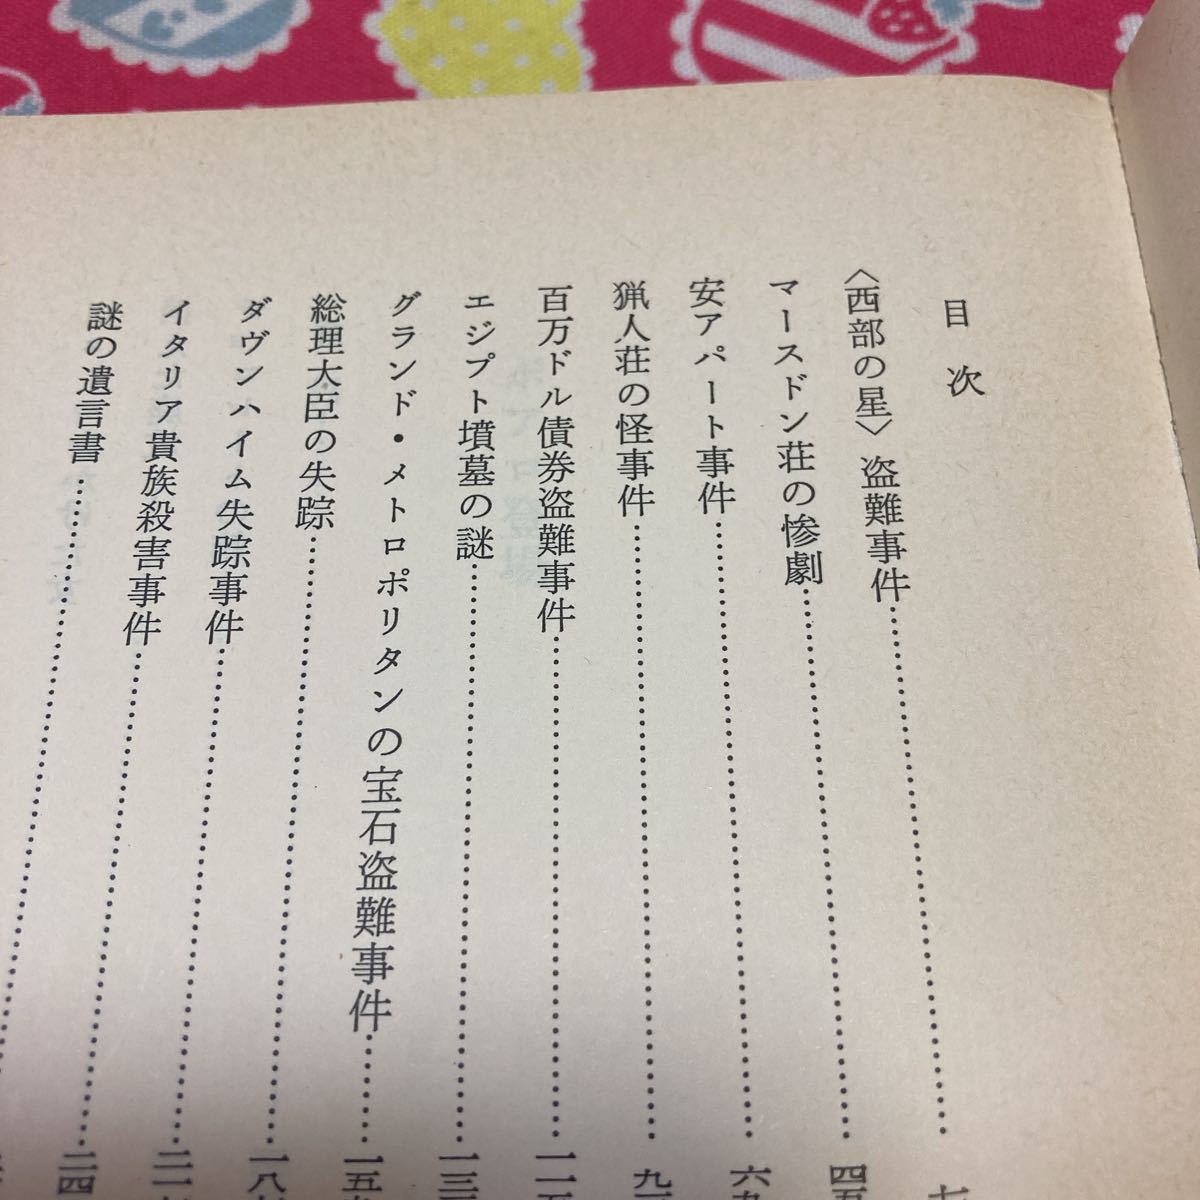 目次
〈西部の星〉盗難事件……七
マースドン荘の惨劇……四五
安アパート事件……六九
猟人荘の怪事件……九
百万ドル債券盗難事件……一一五
エジプト墳墓の謎……一三
グランド・メトロポリタンの宝石盗難事件……一五
総理大臣の失踪……一八
ダヴンハイム失踪事件……二一
イタリア貴族殺害事件……二四
謎の遺言書……